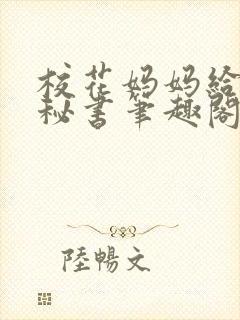 校花妈妈给
秘书笔趣阁
陸暢文